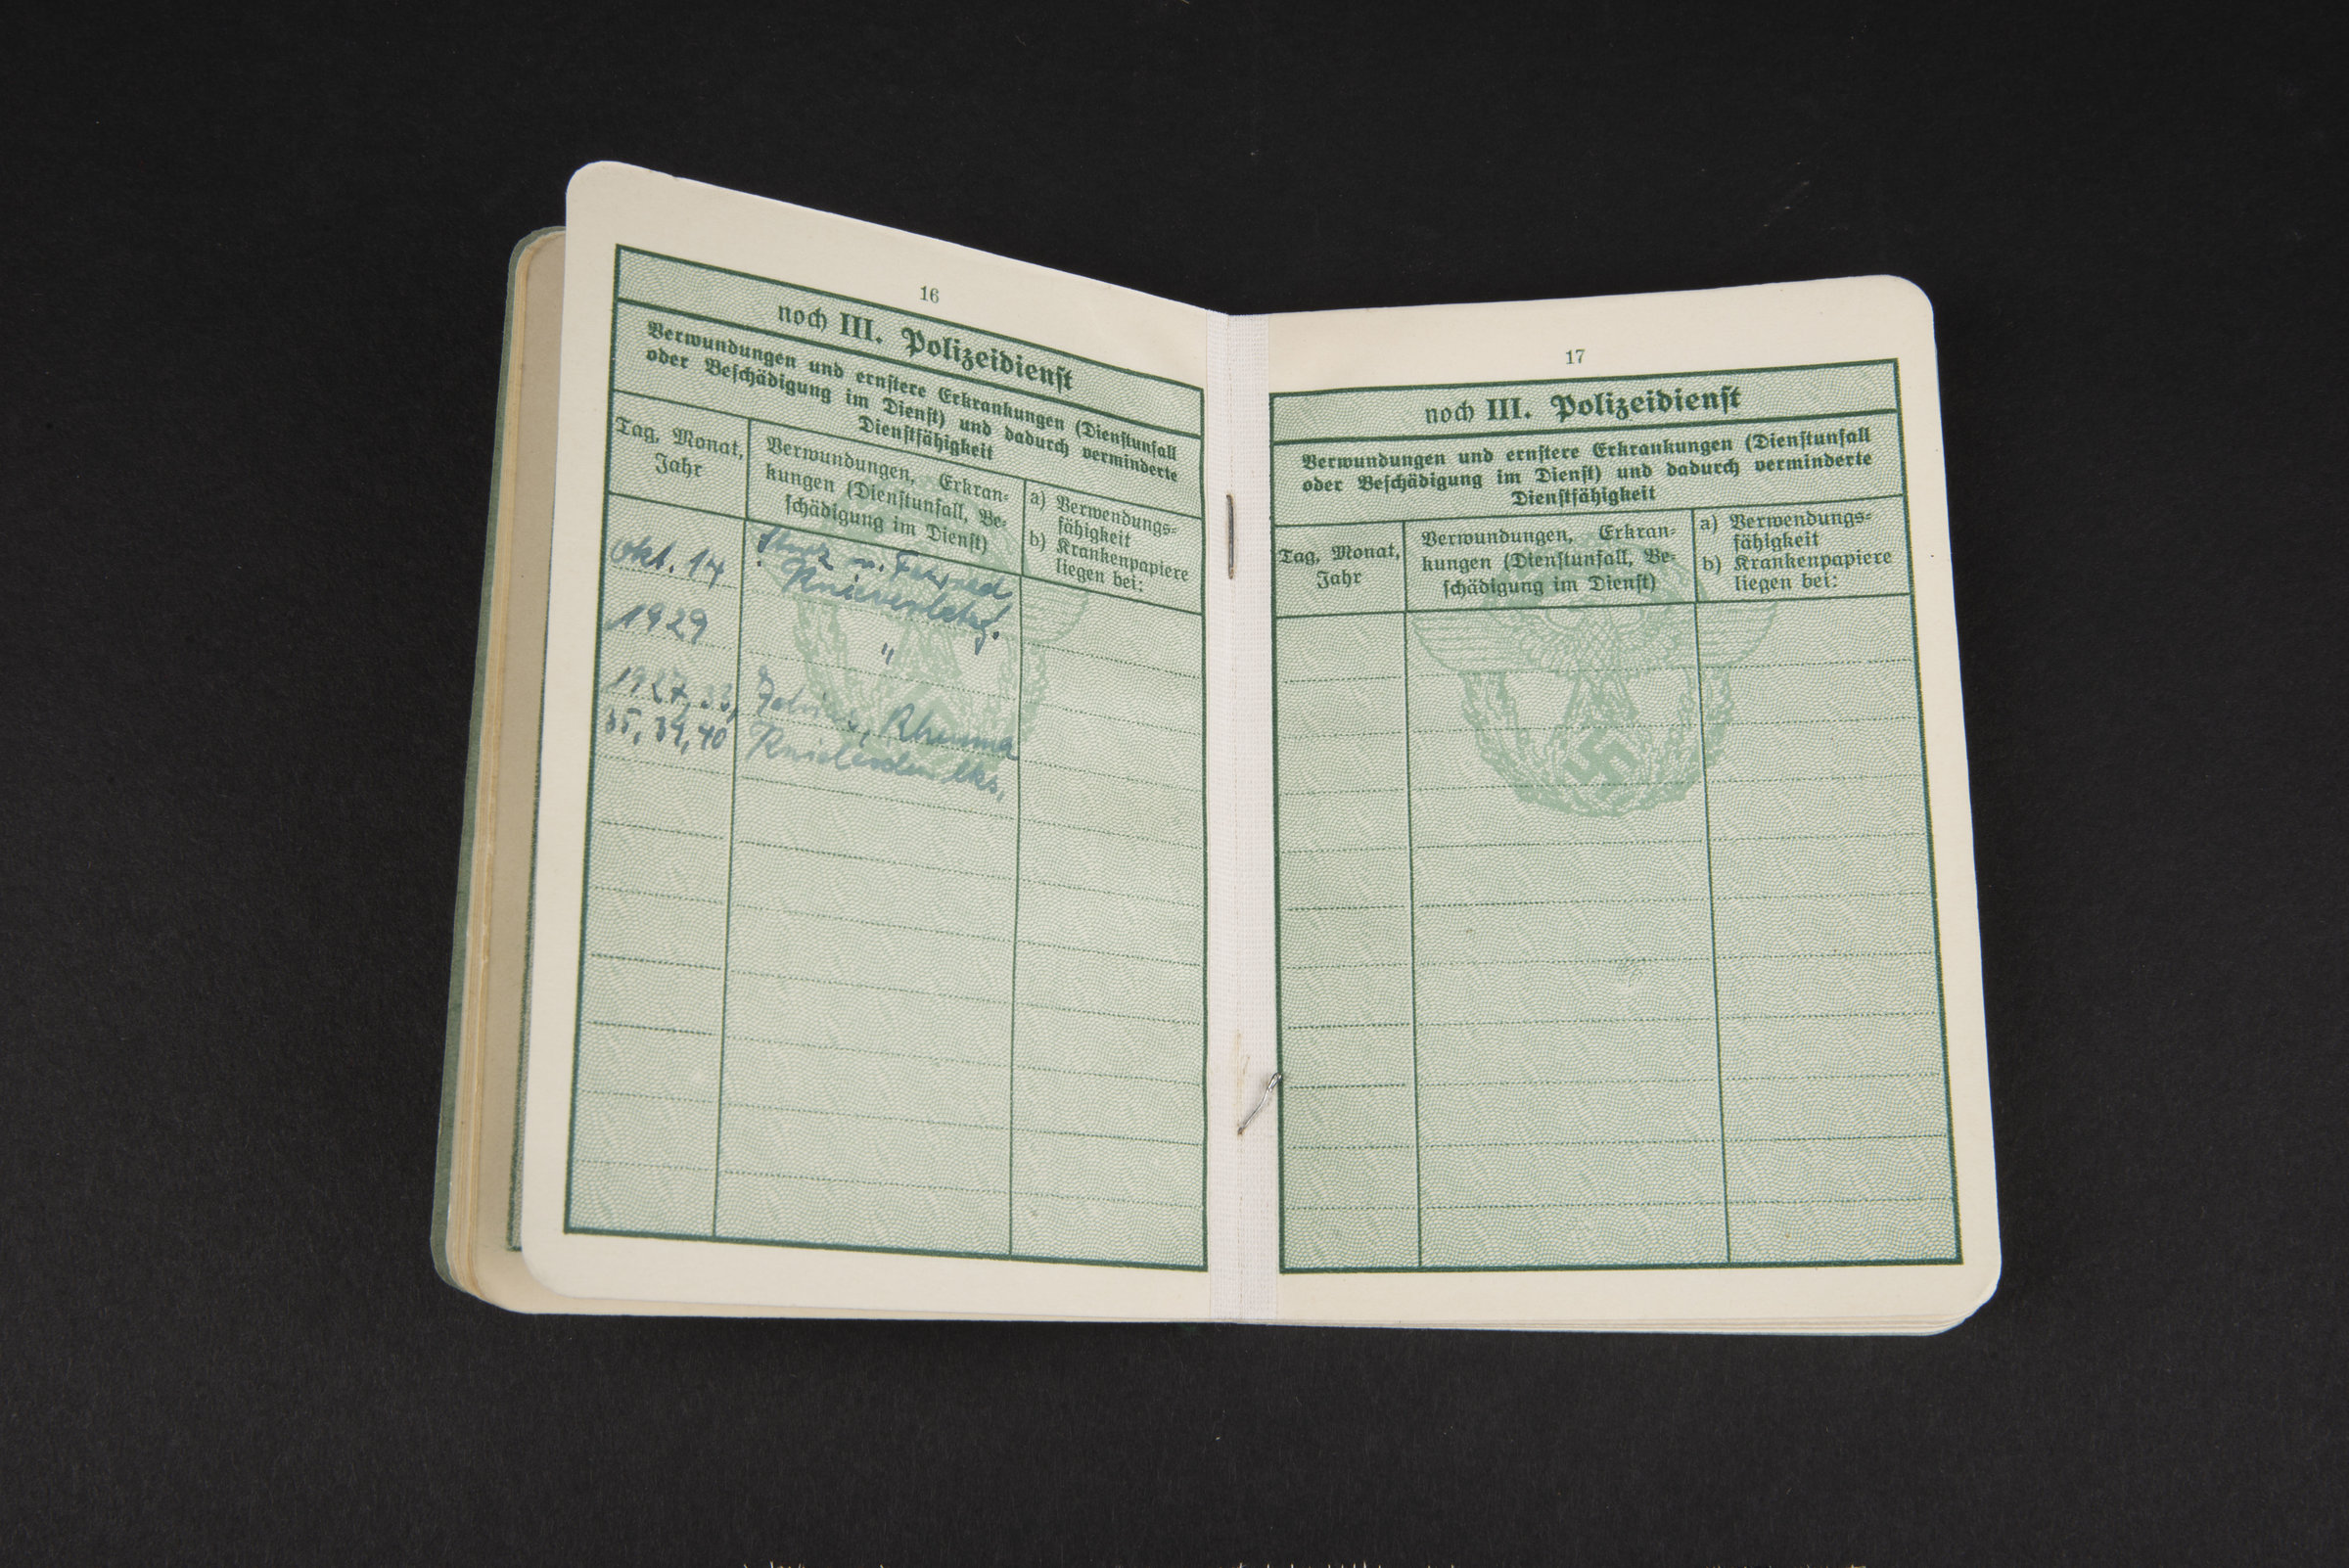 16
noch III. Polizeidienst
Verwundungen und ernstere Erkrankungen (Dienstunfall
oder Beschädigung im Dienst) und dadurch verminderte
Dienstfähigkeit
Tag, Monat,
Jahr
Verwundungen, Erkran-
kungen (Dienstunfall, Be-
schädigung im Dienst)
a) Verwendungs-
fähigkeit
b) Krankenpapiere
liegen bei:
Okt. 14
Sturz m. Fahrrad
Knieverletzg.
1929
"
1927, 33,
35, 39, 40
Rheuma
Knieleiden lks.
17
noch III. Polizeidienst
Verwundungen und ernstere Erkrankungen (Dienstunfall
oder Beschädigung im Dienst) und dadurch verminderte
Dienstfähigkeit
Tag, Monat,
Jahr
Verwundungen, Erkran-
kungen (Dienstunfall, Be-
schädigung im Dienst)
a) Verwendungs-
fähigkeit
b) Krankenpapiere
liegen bei: